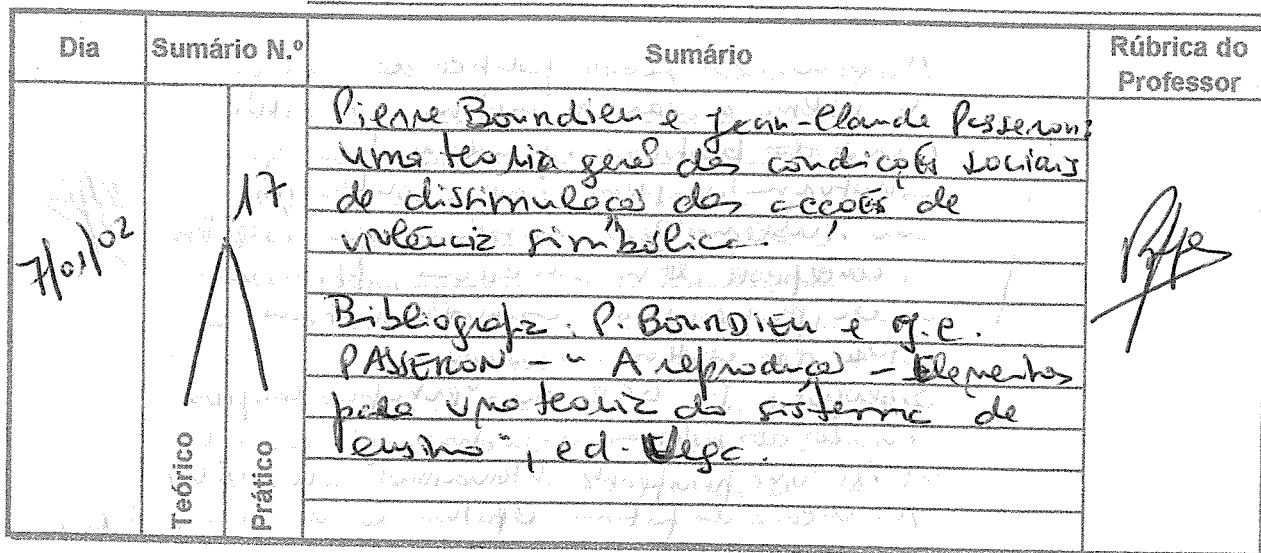 Dia Sumário N.º Sumário Rúbrica do Professor
7/01/02
17
Teórico
Prático
Pierre Bourdieu e Jean-Claude Passeron:
uma teoria geral das condições sociais
de dissimulação das acções de
violência simbólica.
Bibliografia: P. BOURDIEU e J.C.
PASSERON - "A reprodução - Elementos
para uma teoria do sistema de
ensino", ed. Vega.